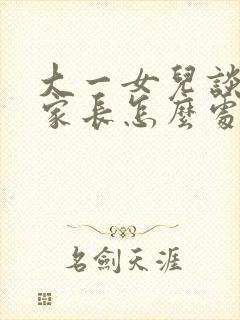 大一女兒談
家長怎麼處
名劍天涯